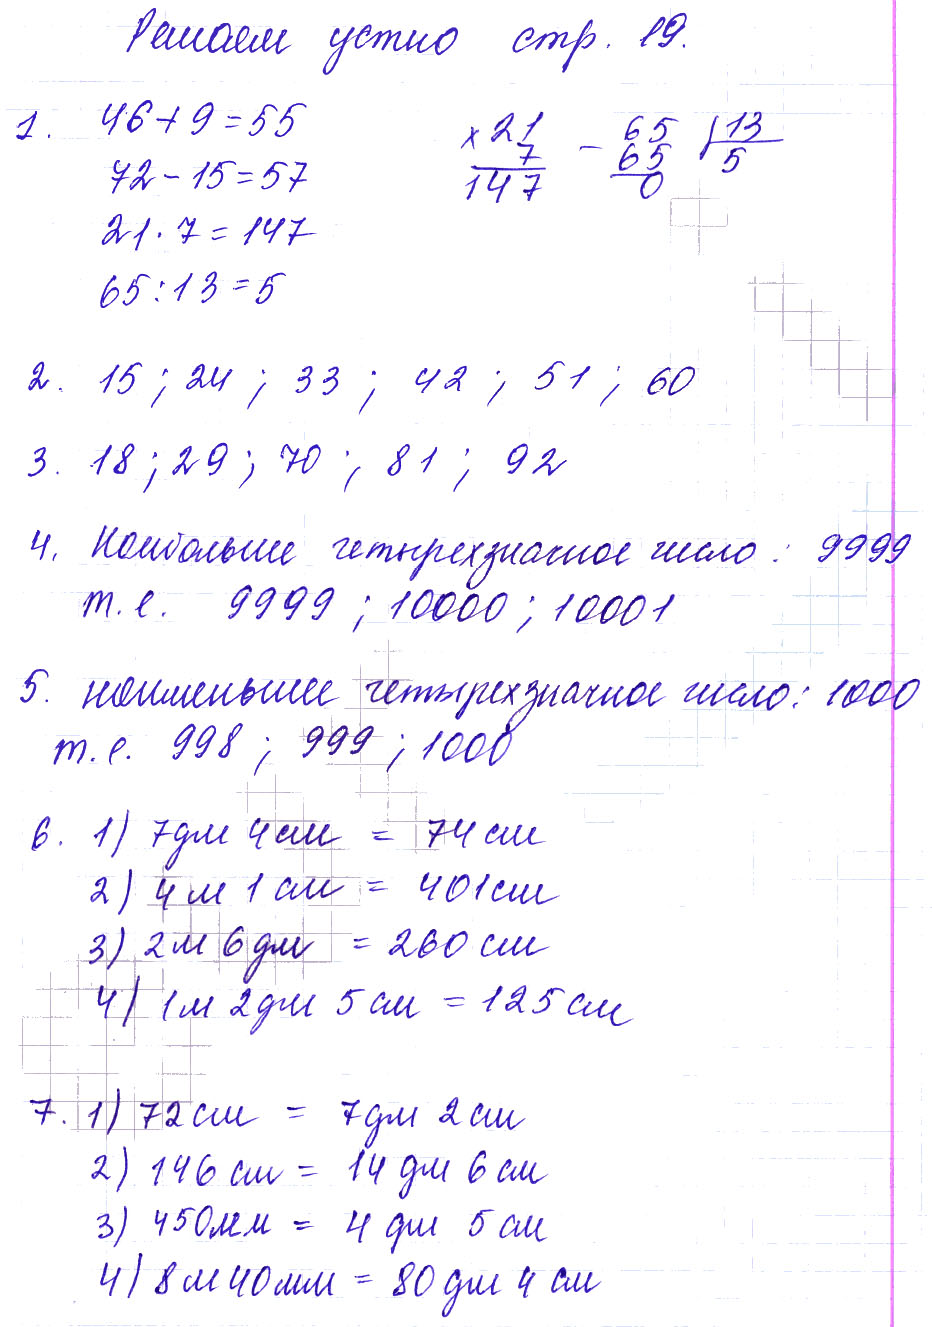 Решаем устно стр. 19.
1. 46+9=55
72-15=57
21·7=147
65:13=5
×21
7
147
- 65 13
65 5
0
2. 15; 24; 33; 42; 51; 60
3. 18; 29; 70; 81; 92
4. Наибольшее четырехзначное число: 9999
т.е. 9999; 10000; 10001
5. наименьшее четырехзначное число: 1000
т.е. 998; 999; 1000
6. 1) 7дм 4см = 74см
2) 4м 1см = 401см
3) 2м 6дм = 260см
4) 1м 2дм 5см = 125см
7. 1) 72см = 7дм 2см
2) 146см = 14дм 6см
3) 450мм = 4дм 5см
4) 8м 40мм = 80дм 4см